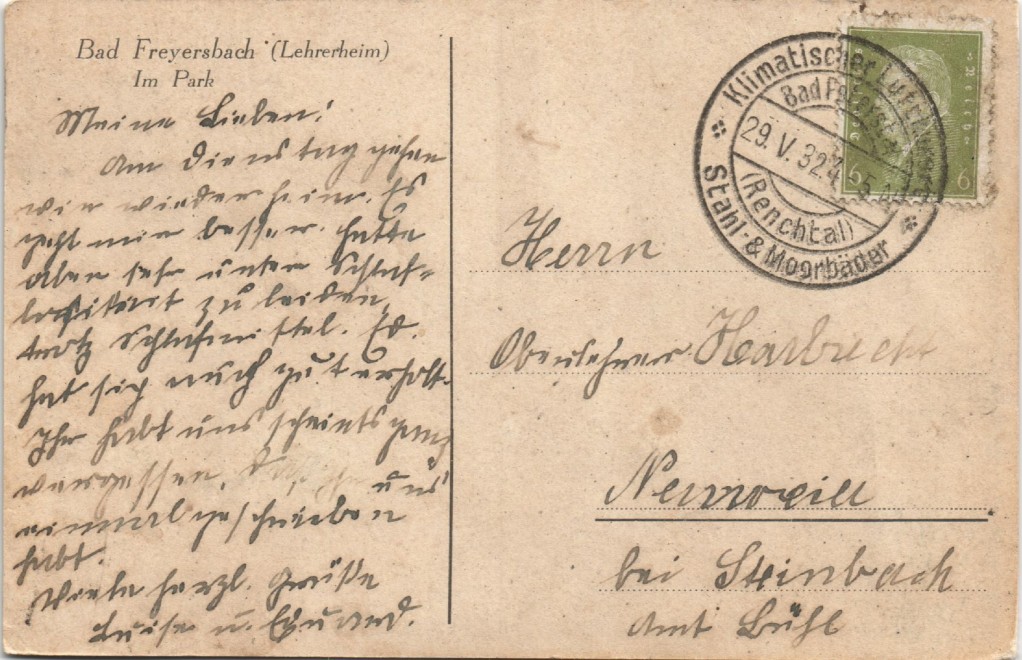 Bad Freyersbach (Lehrerheim)
Im Park
Meine Lieben!
Am Dienstag gehen
wir wieder heim. Es
geht mir besser. Hatte
aber sehr unter Schlaf-
losikeit zu leiden,
trotz Schlafmittel. Ed.
hat sich auch gut erholt.
Ihr habt uns scheints ganz
vergessen, uns
einmal geschrieben
habt.
Viele herzl. Grüße
Luise u. Eduard.
Klimatischer
Bad
29. V. 32
(Renchtal)
Stahl- & Moorbäder
6 6
Herrn
Oberlehrer Harbrecht
Neuweier
bei Steinbach
Amt Bühl